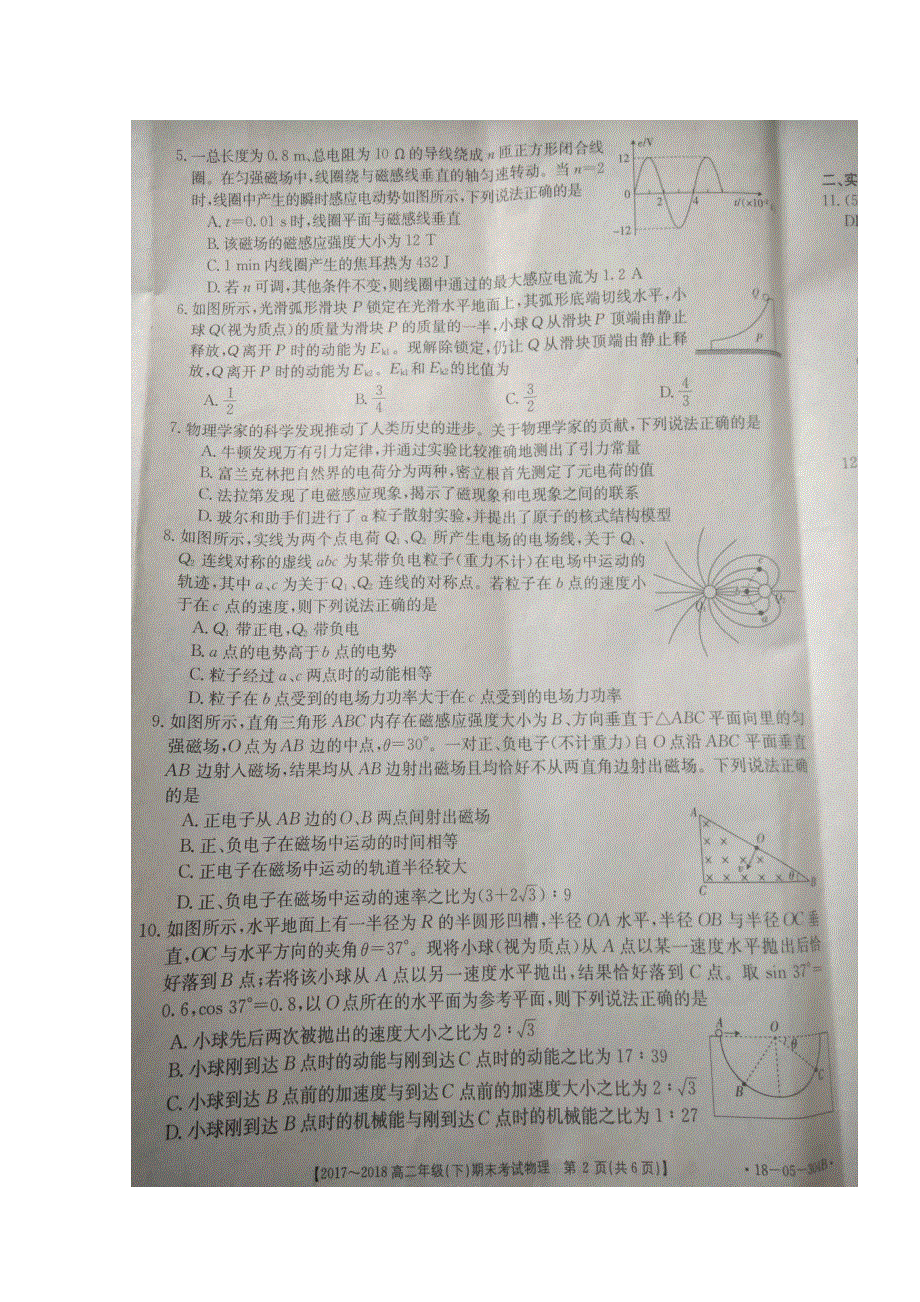 5. 一总长度为 0.8 m、总电阻为 10 Ω 的导线绕成 n 匝正方形闭合线
圈。在匀强磁场中,线圈绕与磁感线垂直的轴匀速转动。当 n=2
时,线圈中产生的瞬时感应电动势如图所示,下列说法正确的是
A. t=0.01 s时,线圈平面与磁感线垂直
B. 该磁场的磁感应强度大小为 12 T
C. 1 min 内线圈产生的焦耳热为 432 J
D. 若 n 可调,其他条件不变,则线圈中通过的最大感应电流为 1.2 A
e/V
12
0
2
4
−12
6. 如图所示,光滑弧形滑块 P 锁定在光滑水平地面上,其弧形底端切线水平,小
球 Q(视为质点)的质量为滑块 P 的质量的一半,小球 Q 从滑块 P 顶端由静止
释放,Q 离开 P 时的动能为 Ek1。现解除锁定,仍让 Q 从滑块顶端由静止释
放,Q 离开 P 时的动能为 Ek2。Ek1 和 Ek2 的比值为
A. 1/2 B. 3/4 C. 3/2 D. 4/3
Q
P
7. 物理学家的科学发现推动了人类历史的进步。关于物理学家的贡献,下列说法正确的是
A. 牛顿发现万有引力定律,并通过实验比较准确地测出了引力常量
B. 富兰克林把自然界的电荷分为两种,密立根首先测定了元电荷的值
C. 法拉第发现了电磁感应现象,揭示了磁现象和电现象之间的联系
D. 玻尔和助手们进行了 α 粒子散射实验,并提出了原子的核式结构模型
8. 如图所示,实线为两个点电荷 Q1、Q2 所产生电场的电场线,关于 Q1、
Q2 连线对称的虚线 abc 为某带负电粒子(重力不计)在电场中运动的
轨迹,其中 a、c 为关于 Q1、Q2 连线的对称点。若粒子在 b 点的速度小
于在 c 点的速度,则下列说法正确的是
A. Q1 带正电,Q2 带负电
B. a 点的电势高于 b 点的电势
C. 粒子经过 a、c 两点时的动能相等
D. 粒子在 b 点受到的电场力功率大于在 c 点受到的电场力功率
c
b
a
Q1
9. 如图所示,直角三角形 ABC 内存在磁感应强度大小为 B、方向垂直于△ABC 平面向里的匀
强磁场,O 点为 AB 边的中点,θ=30°。一对正、负电子(不计重力)自 O 点沿 ABC 平面垂直
AB 边射入磁场,结果均从 AB 边射出磁场且均恰好不从两直角边射出磁场。下列说法正确
的是
A. 正电子从 AB 边的 O、B 两点间射出磁场
B. 正、负电子在磁场中运动的时间相等
C. 正电子在磁场中运动的轨道半径较大
D. 正、负电子在磁场中运动的速率之比为(3+2√3)∶9
A
O
v
θ
C
B
10. 如图所示,水平地面上有一半径为 R 的半圆形凹槽,半径 OA 水平,半径 OB 与半径 OC 垂
直,OC 与水平方向的夹角 θ=37°。现将小球(视为质点)从 A 点以某一速度水平抛出后恰
好落到 B 点;若将该小球从 A 点以另一速度水平抛出,结果恰好落到 C 点。取 sin 37°=
0.6,cos 37°=0.8,以 O 点所在的水平面为参考平面,则下列说法正确的是
A. 小球先后两次被抛出的速度大小之比为 2∶√3
B. 小球刚到达 B 点时的动能与刚到达 C 点时的动能之比为 17∶39
C. 小球到达 B 点前的加速度与到达 C 点前的加速度大小之比为 2∶√3
D. 小球刚到达 B 点时的机械能与刚到达 C 点时的机械能之比为 1∶27
A
O
θ
B
C
【2017~2018 高二年级(下)期末考试物理 第 2 页(共 6 页)】
二、实
11. (5
12